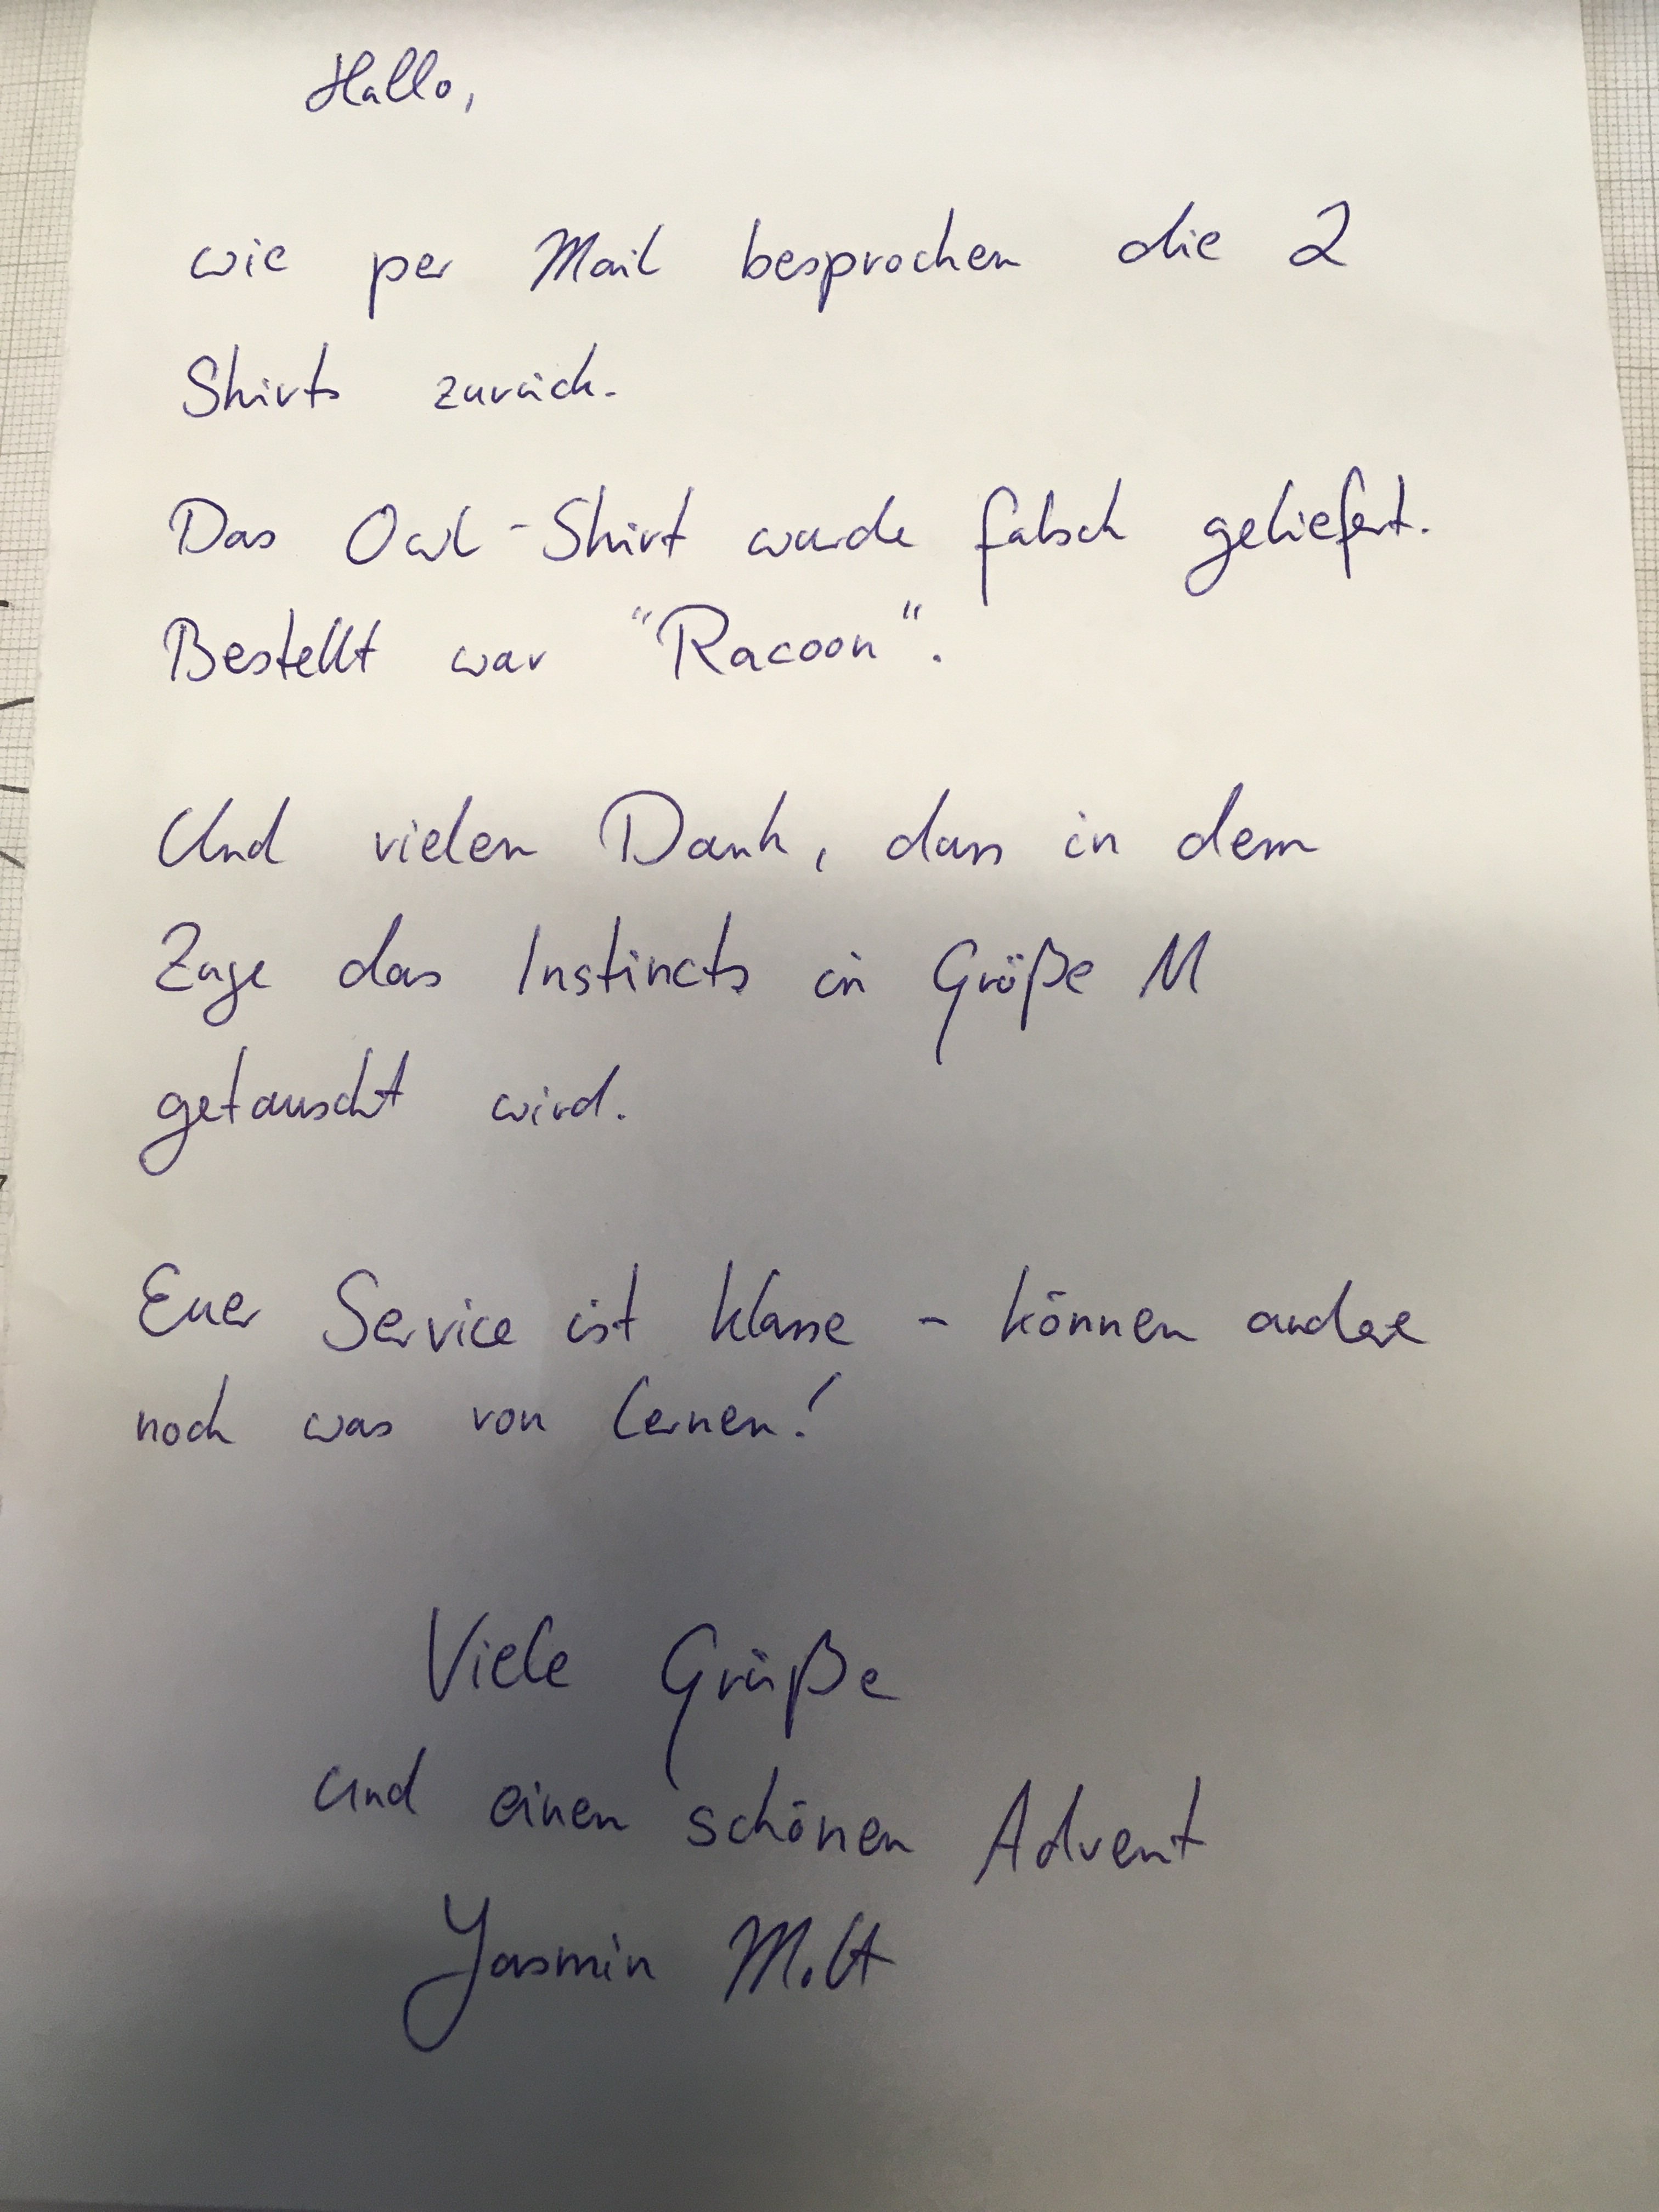 Hallo,
wie per Mail besprochen die 2
Shirts zurück.
Das Owl-Shirt wurde falsch geliefert.
Bestellt war "Racoon".
Und vielen Dank, dass in dem
Zuge das Instincts in Größe M
getauscht wird.
Euer Service ist klasse - können andere
noch was von lernen!
Viele Grüße
und einen schönen Advent
Yasmin